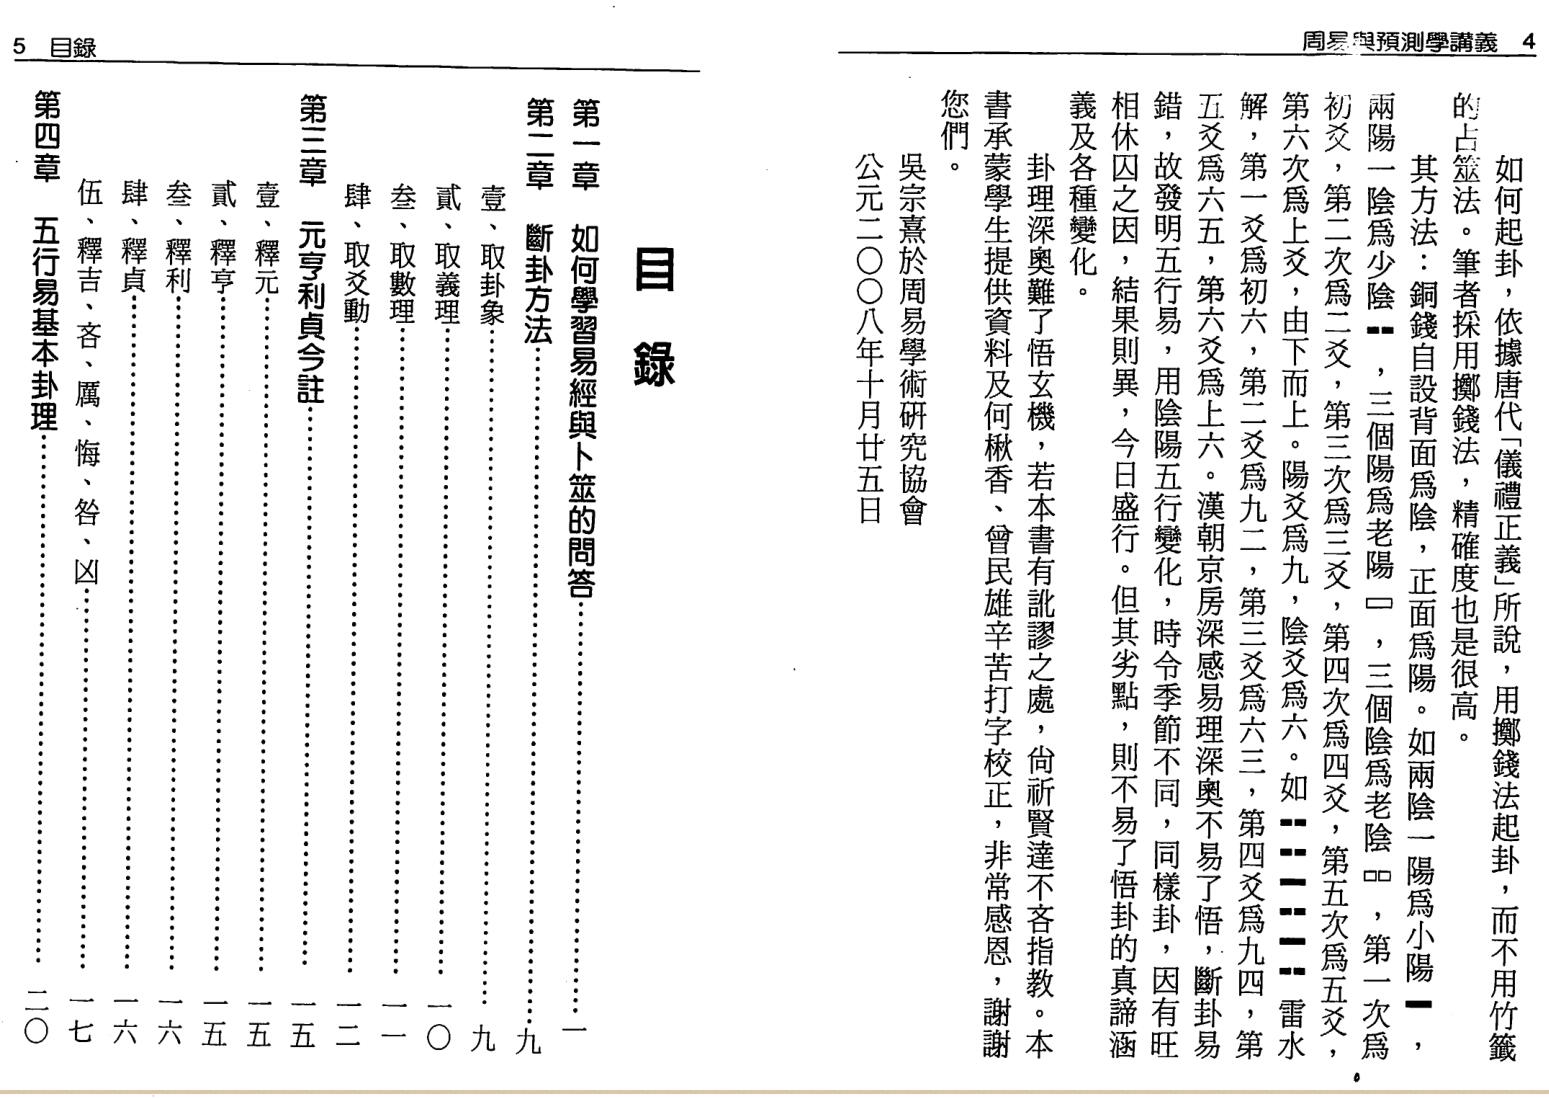 周易與預測學講義　4
　　如何起卦，依據唐代「儀禮正義」所說，用擲錢法起卦，而不用竹籤
的占筮法。筆者採用擲錢法，精確度也是很高。
　　其方法：銅錢自設背面爲陰，正面爲陽。如兩陰一陽爲小陽▬，
兩陽一陰爲少陰▬▬，三個陽爲老陽▭，三個陰爲老陰▭▭，第一次爲
初爻，第二次爲二爻，第三次爲三爻，第四次爲四爻，第五次爲五爻，
第六次爲上爻，由下而上。陽爻爲九，陰爻爲六。如▬▬ ▬▬ ▬ ▬▬ ▬ ▬▬雷水
解，第一爻爲初六，第二爻爲九二，第三爻爲六三，第四爻爲九四，第
五爻爲六五，第六爻爲上六。漢朝京房深感易理深奧不易了悟，斷卦易
錯，故發明五行易，用陰陽五行變化，時令季節不同，同樣卦，因有旺
相休囚之因，結果則異，今日盛行。但其劣點，則不易了悟卦的真諦涵
義及各種變化。
　　卦理深奧難了悟玄機，若本書有訛謬之處，尙祈賢達不吝指教。本
書承蒙學生提供資料及何楸香、曾民雄辛苦打字校正，非常感恩，謝謝
您們。
　　吳宗熹於周易學術研究協會
　　公元二〇〇八年十月廿五日
5　目錄
目　錄
第一章　如何學習易經與卜筮的問答⋯⋯一
第二章　斷卦方法⋯⋯九
壹、取卦象⋯⋯九
貳、取義理⋯⋯一〇
叁、取數理⋯⋯一一
肆、取爻動⋯⋯一二
第三章　元亨利貞今註⋯⋯一五
壹、釋元⋯⋯一五
貳、釋亨⋯⋯一五
叁、釋利⋯⋯一六
肆、釋貞⋯⋯一六
伍、釋吉、吝、厲、悔、咎、凶⋯⋯一七
第四章　五行易基本卦理⋯⋯二〇